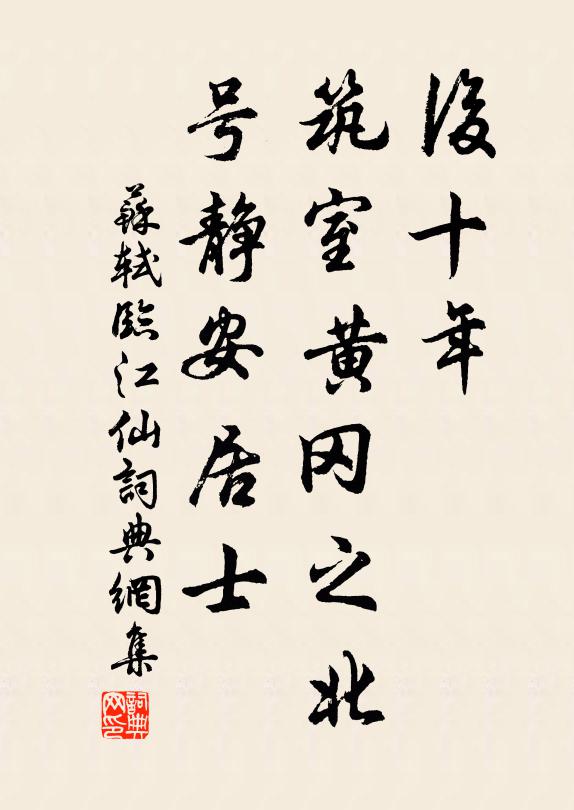 後十年
筑室黄冈之北
号靜安居士
蘇軾臨江仙詞典網集
詞典網印